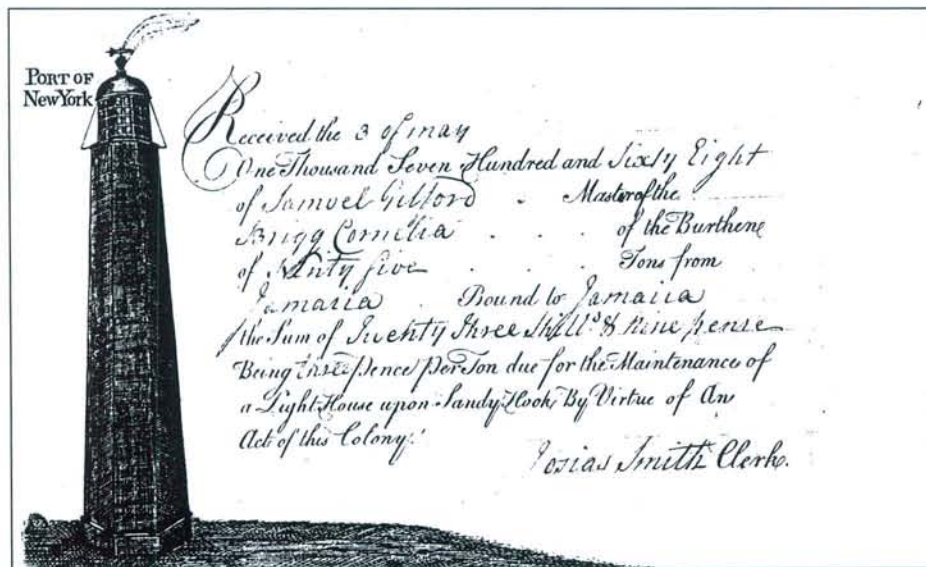 PORT OF
New York
Received the 3 of may
One Thousand Seven Hundred and Sixty Eight
of Samuel Gilford . Master of the
Brigg Cornelia . . . of the Burthene
of Ninty five . . . Tons from
Jamaica . Bound to Jamaica
the Sum of Twenty three Shills & nine pense
Being three pence per Ton due for the Maintenance of
a Light House upon Sandy Hook, By Virtue of An
Act of this Colony.
Josias Smith Clerk.